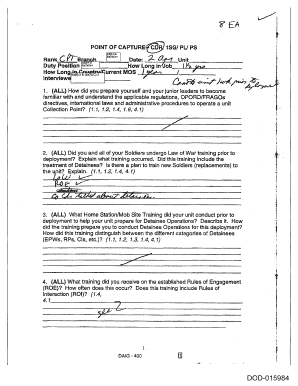 8 EA
POINT OF CAPTURE - CDR/ 1SG/ PL/ PS
Rank CPT Branch Date: 2 Apr Unit
Duty Position How Long in Job 1½ yrs
How Long in Career/Current MOS 1 year
Interviews
1. (ALL) How did you prepare yourself and your junior leaders to become
familiar with and understand the applicable regulations, OPORD/FRAGOs
directives, international laws and administrative procedures to operate a unit
Collection Point? (1.1, 1.2, 1.4, 1.6, 4.1)
2. (ALL) Did you and all of your Soldiers undergo Law of War training prior to
deployment? Explain what training occurred. Did this training include the
treatment of Detainees? Is there a plan to train new Soldiers (replacements) to
the unit? Explain. (1.1, 1.2, 1.4, 4.1)
LOW
ROE
talked about detainees.
3. (ALL) What Home Station/Mob Site Training did your unit conduct prior to
deployment to help your unit prepare for Detainee Operations? Describe it. How
did the training prepare you to conduct Detainee Operations for this deployment?
How did this training distinguish between the different categories of Detainees
(EPWs, RPs, CIs, etc.)? (1.1, 1.2, 1.3, 1.4, 4.1)
4. (ALL) What training did you receive on the established Rules of Engagement
(ROE)? How often does this occur? Does this training include Rules of
Interaction (ROI)? (1.4,
4.1
see 2
1
DAIG - 400
DOD-015984